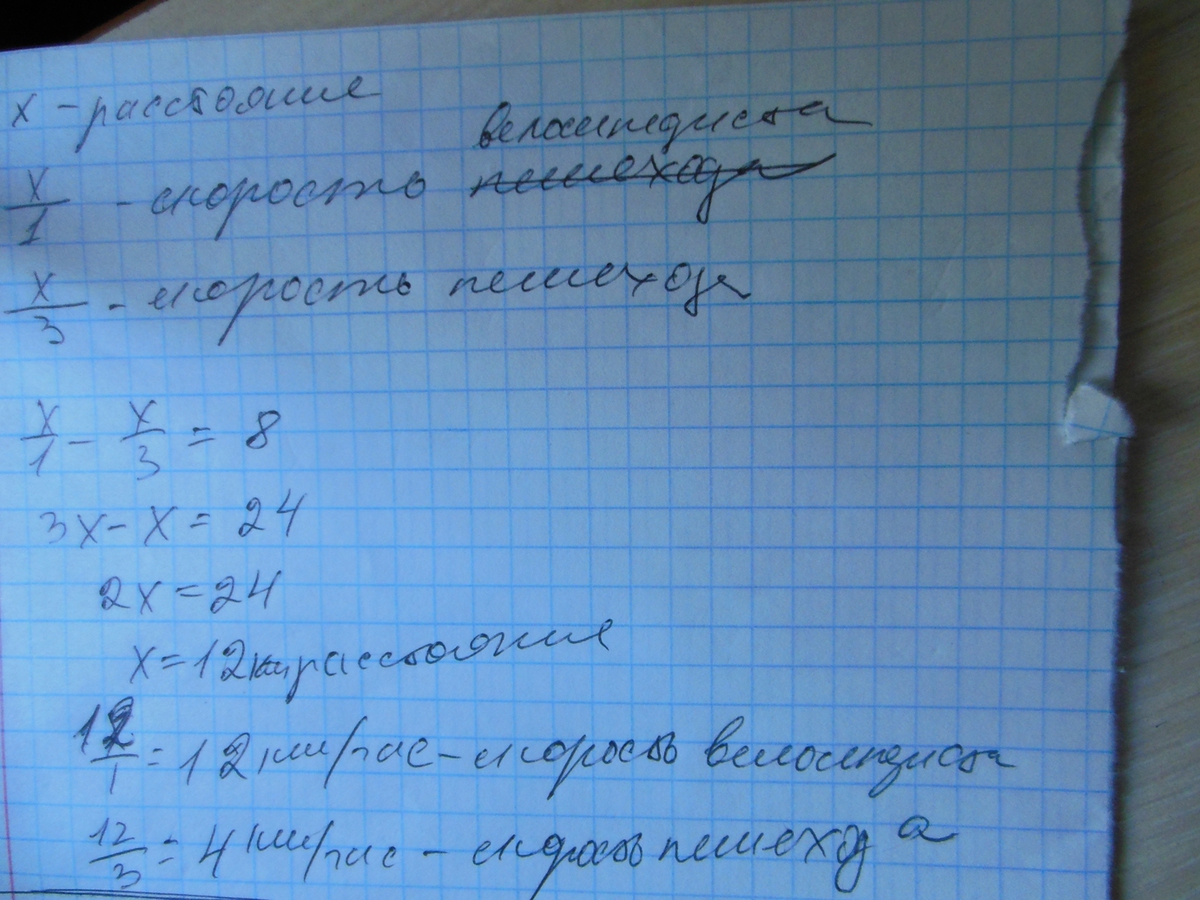 x - расстояние
велосипедиста
x/1 - скорость пешехода
x/3 - скорость пешехода
x/1 - x/3 = 8
3x - x = 24
2x = 24
x = 12 км расстояние
12/1 = 12 км/час - скорость велосипедиста
12/3 = 4 км/час - скорость пешехода